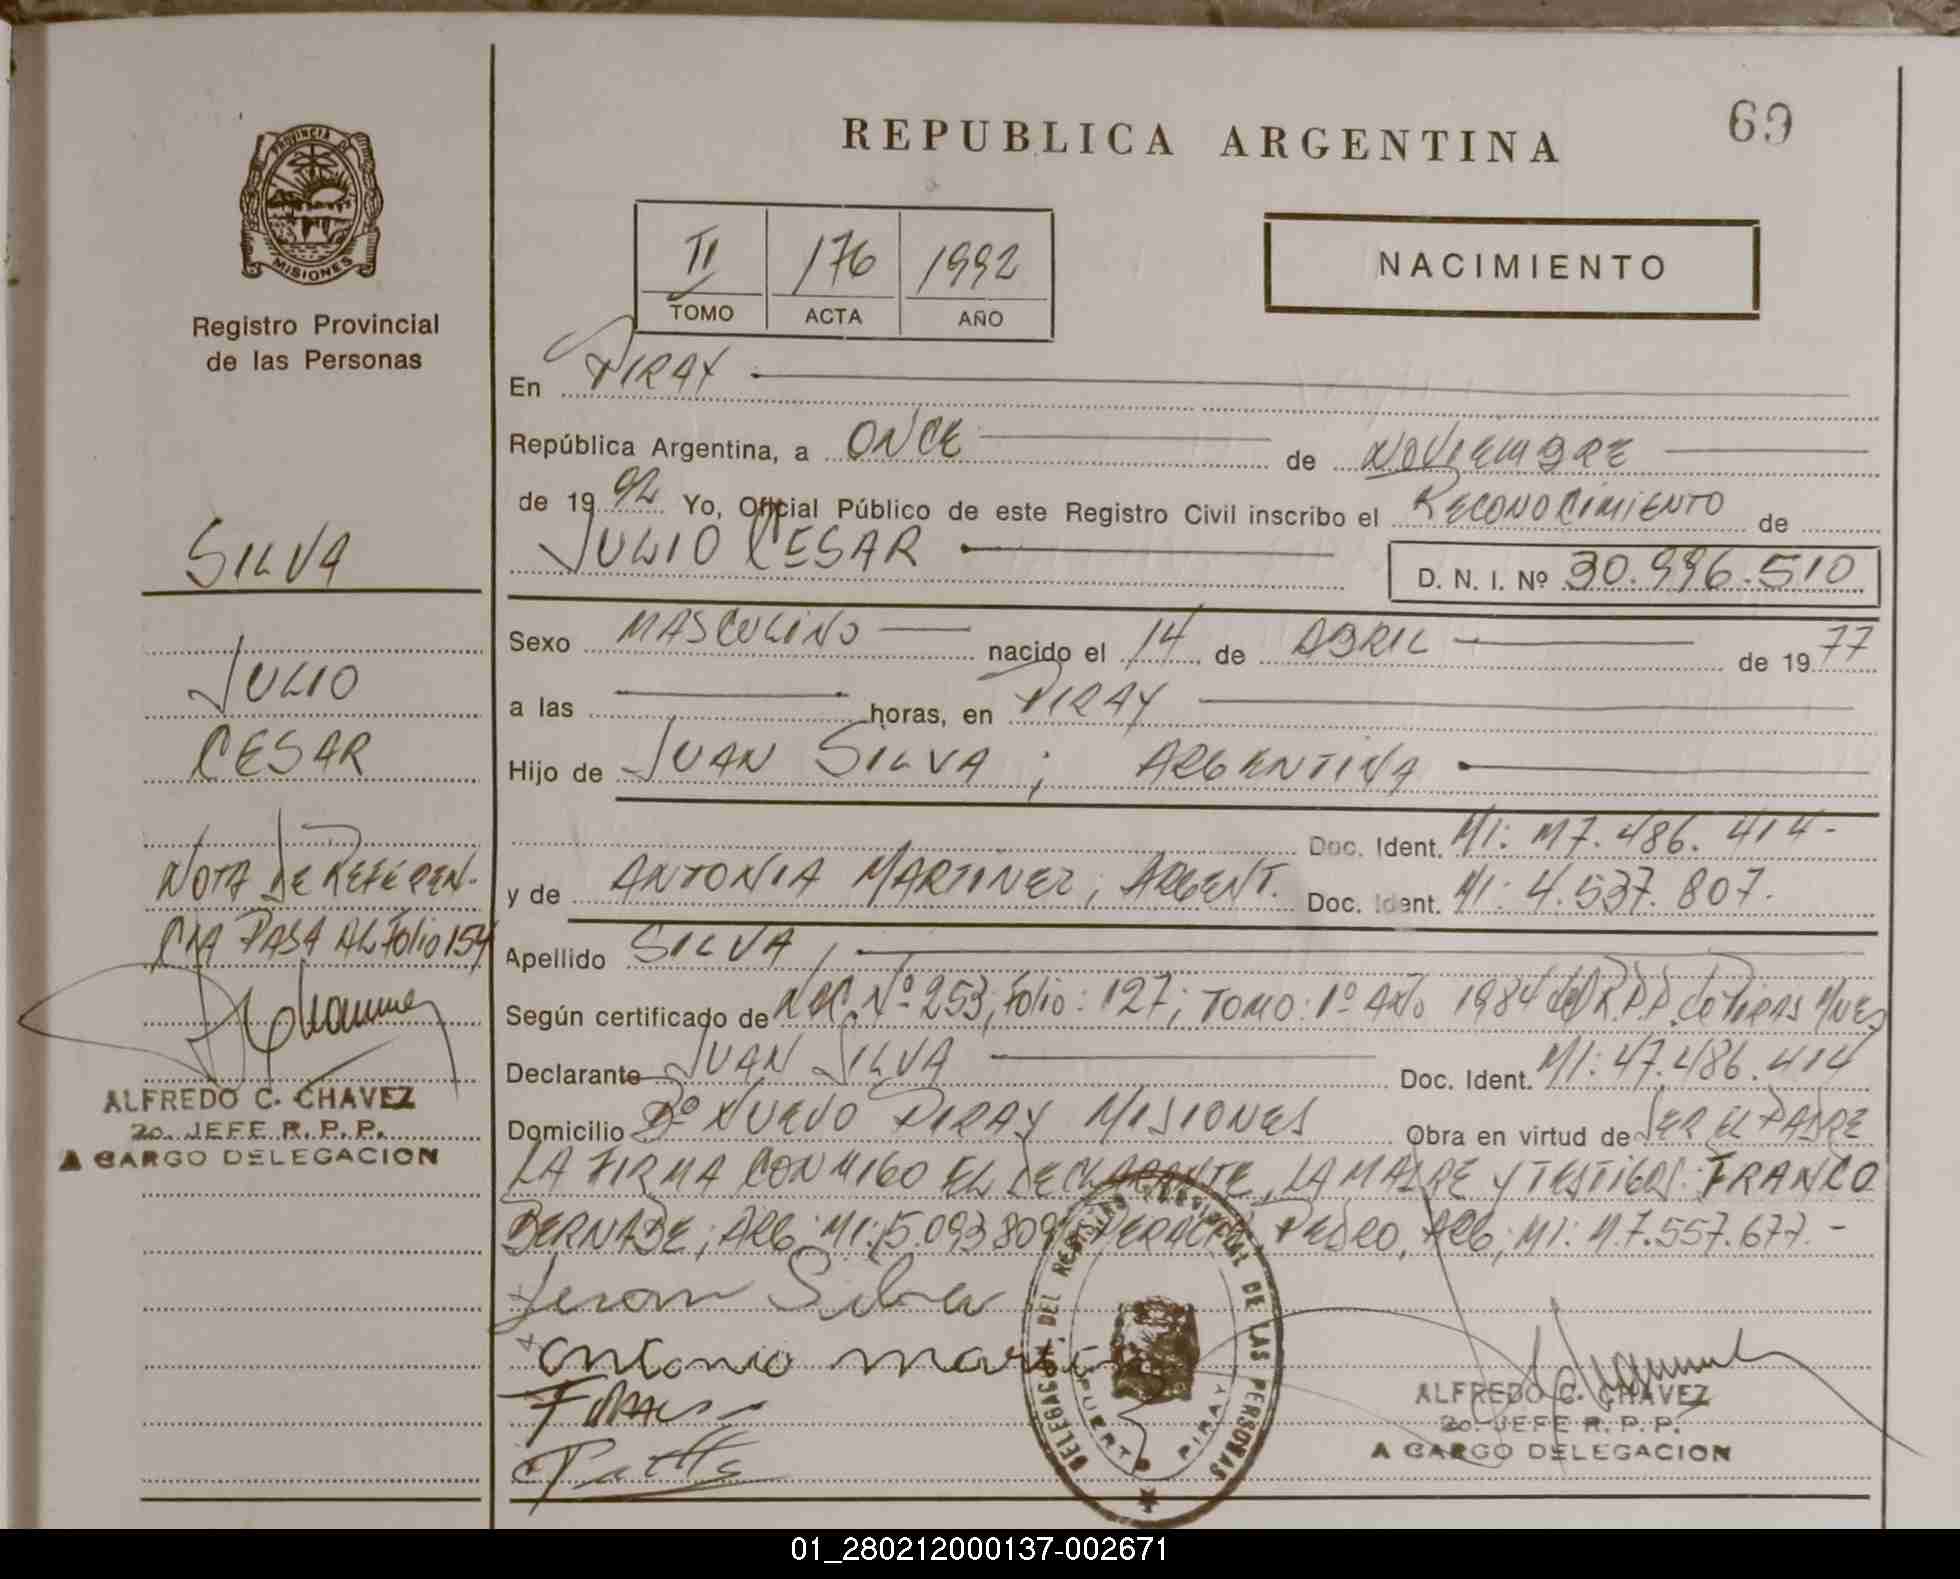 69
REPUBLICA ARGENTINA
PROVINCIA DE
MISIONES
Registro Provincial
de las Personas
II 176 1992
TOMO ACTA AÑO
NACIMIENTO
En PIRAY
República Argentina, a ONCE de NOVIEMBRE
de 1992 Yo, Oficial Público de este Registro Civil inscribo el RECONOCIMIENTO de
JULIO CESAR D. N. I. Nº 30.996.510
Sexo MASCULINO nacido el 14 de ABRIL de 1977
a las horas, en PIRAY
Hijo de JUAN SILVA; ARGENTINA
Doc. Ident. MI: M7.486.414-
y de ANTONIA MARTINEZ, ARGENT. Doc. Ident. MI: 4.537.807.
Apellido SILVA,
Según certificado de NAC. Nº 253; Folio: 127; TOMO: 1º AÑO 1984 del R.P.P. de
Declarante JUAN SILVA Doc. Ident. MI: M7.486.414
Domicilio Bº NUEVO PIRAY MISIONES Obra en virtud de SER EL PADRE
LA FIRMA CONMIGO EL DECLARANTE, LA MADRE Y TESTIGOS: FRANCO
BERNABE; ARG; MI: 5.093.809 PEDRO, ARG; MI: M7.557.677.-
Silva
antonio
ALFREDO C. CHAVEZ
2o. JEFE R. P. P.
A CARGO DELEGACION
DELEGACION DEL REGISTRO PROVINCIAL DE LAS PERSONAS
PUERTO PIRAY
SILVA
JULIO
CESAR
NOTA DE REFEREN-
CIA PASA AL Folio 154
ALFREDO C. CHAVEZ
2o. JEFE R. P. P.
A CARGO DELEGACION
01_280212000137-002671